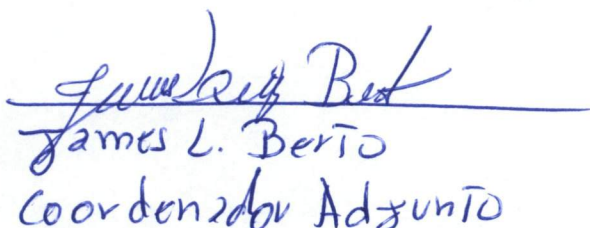 James L. Berto
Coordenador Adjunto